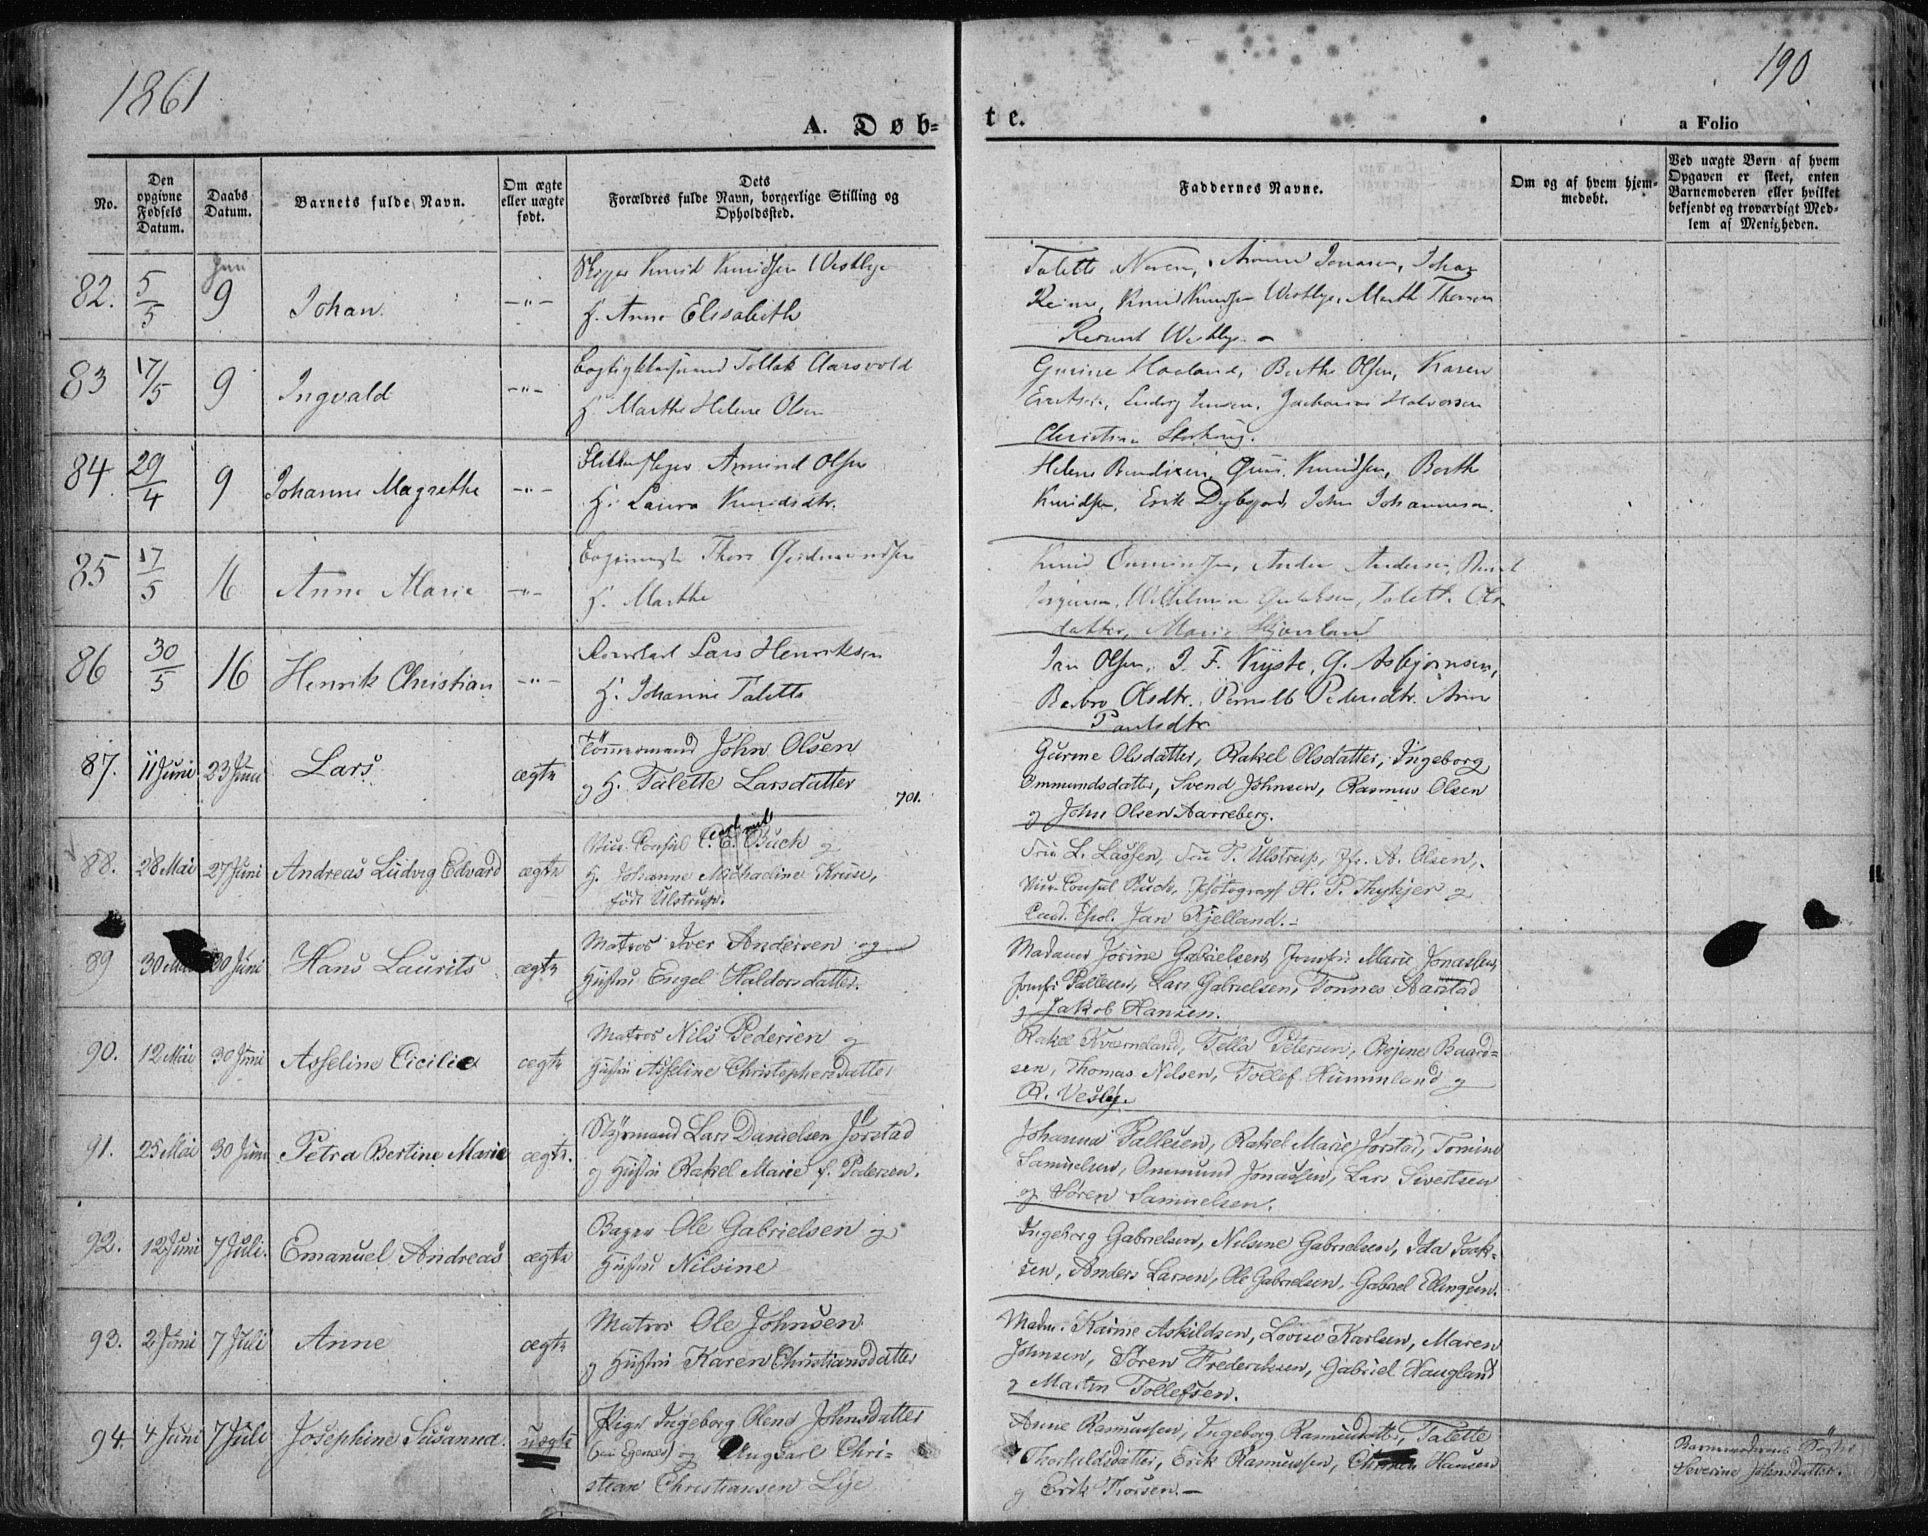 1861
190
A. Døb-
te.
a Folio
No.
Den opgivne Fødsels Datum.
Daabs Datum.
Barnets fulde Navn.
Om ægte eller uægte født.
Dets Forældres fulde Navn, borgerlige Stilling og Opholdssted.
Faddernes Navne.
Om og af hvem hjem-
medøbt.
Ved uægte Børn af hvem
Opgaven er skeet, enten
Barnemoderen eller hvilket
bekjendt og troværdigt Med-
lem af Menigheden.
82. 5/5 Juni 9 Johan. -"-
Knud Knudsen Westbye
H. Anne Elisabeth
Talette Johan
Knud Knudsen Westbye, Marth
Westbye
83 17/5 9 Ingvald -"-
Tollak Aarsvold
H. Marthe Helene Olsen
Gurine Haaland, Berthe Olsen, Karen
Ludvig Jensen, Zacharias Halvorsen
Christian
84. 29/4 9 Johanne Magrethe -"-
Amund Olsen
H. Laura Knudsdtr.
Helene Knudsen, Berthe
Knudsen, Erik John Johannesen.
85 17/5 16 Anne Marie -"-
Thore Gudmundsen
H. Marthe
Knud Andersen,
Talett. Ols
datter, Marie
86 30/5 16 Henrik Christian -"-
Lars Henriksen
H. Johanne Talette
Jan Olsen, J. F. G. Asbjørnsen,
Barbro Olsdtr. Pernille Pedersdtr. Anne
Paulsdtr.
87. 11 Juni 23 Juni Lars ægte
Tømmermand John Olsen
og H. Talette Larsdatter
701.
Gurine Olsdatter, Rakel Olsdatter, Ingeborg
Ommundsdatter, Svend Johnsen, Rasmus Olsen
og John Olsen Aarreberg.
88. 28 Mai 27 Juni Andreas Ludvig Edvard ægte
Vice Consul C. E. Buck og
H. Johanne Michadine Kruse,
født Ulstrup.
Fru L. Lassen, Fru T. Ulstrup, Jfr. A. Olsen,
Vice Consul Buck, Photograph H. P. Thykjer og
Cand. Theol. Jan Kjelland.-
89 30 Mai 30 Juni Hans Laurits ægte
Matros Iver Andersen og
Hustru Engel Haldorsdatter.
Madame Jorine Gabrielsen, Jomfru Marie Jonassen,
Jomfr. Pallesen, Lars Gabrielsen, Tønnes Aarstad
og Jakob Hansen.
90. 12 Mai 30 Juni Asseline Cicilie ægte
Matros Nils Pedersen og
Hustru Asseline Christophersdatter
Rakel Kværneland, Tella Petersen, Baard-
sen, Thomas Nilsen, Tollef Hummland og
R. Vesby.
91. 25 Mai 30 Juni Petra Bertine Marie ægte.
Styrmand Lars Danielsen Jørstad
og Hustru Rakel Marie f. Pedersen.
Johanna Pallesen, Rakel Marie Jørstad, Tomine
Samuelsen, Ommund Jonassen, Lars Sivertsen
og Søren Samuelsen.
92. 12 Juni 7 Juli. Emanuel Andreas ægte
Bager Ole Gabrielsen og
Hustru Nilsine
Ingeborg Gabrielsen, Nilsine Gabrielsen, Ida Isak-
sen, Anders Larsen, Ole Gabrielsen, Gabriel Ellingsen.
93. 2 Juni 7 Juli Anne ægte
Matros Ole Johnsen
og Hustru Karen Christiansdatter
Madm. Karine Askildsen, Lovise Karlsen, Maren
Johnsen, Søren Frederiksen, Gabriel Haugland
og Martin Tollefsen.
94. 4 Juni 7 Juli Josephine Susanna. uægte
Pige Ingeborg Olene Johnsdatter
og Ungkarl Chri-
stian Christiansen Lye
Anne Rasmussen, Ingeborg Rasmusdatter, Talette
Thorkildsdatter, Erik Rasmussen, Hansen
og Erik Thorsen.-
Barnemoderens Søster
Severine Johnsdatter.